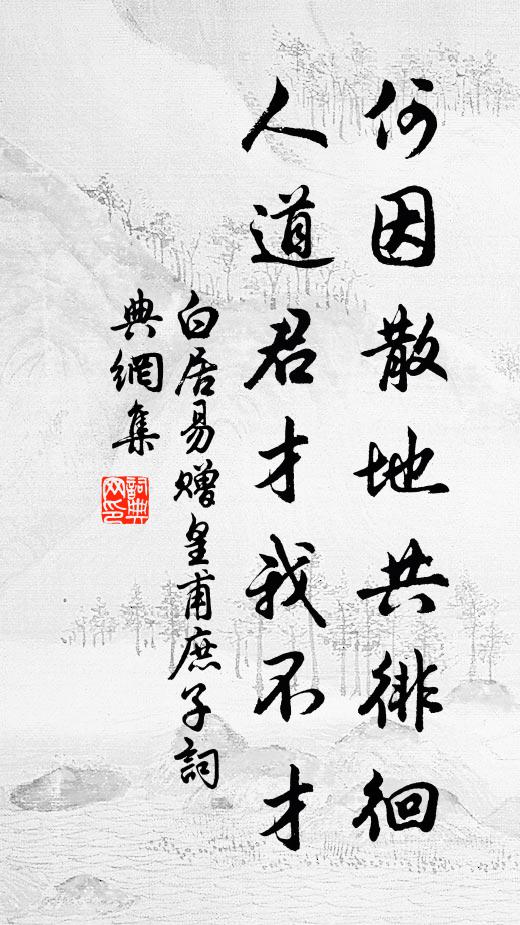 何因散地共徘徊
人道君才我不才
白居易贈皇甫庶子詞
典網集
詞典
网印